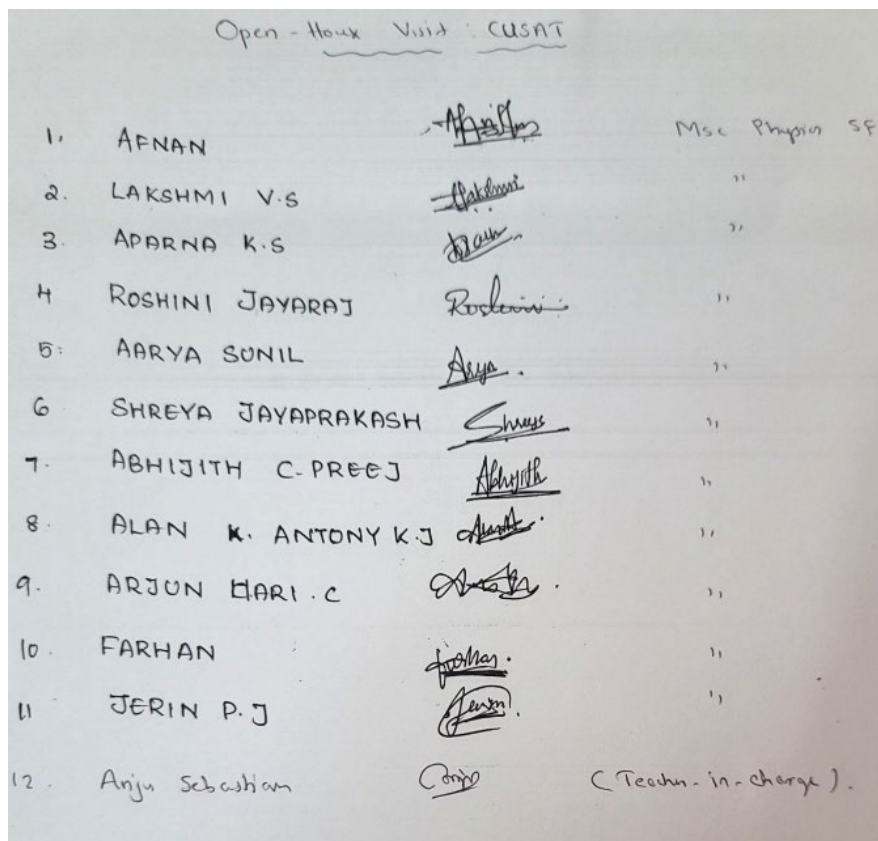 Open-House Visit : CUSAT
1. AFNAN Msc Physics SF
2. LAKSHMI V.S Lakshmi "
3. APARNA K.S "
4 ROSHINI JAYARAJ Roshini "
5: AARYA SUNIL Arya . "
6 SHREYA JAYAPRAKASH Shreya "
7. ABHIJITH C. PREEJ Abhijith "
8. ALAN K. ANTONY K.J "
9. ARJUN HARI . C "
10. FARHAN Farhan. "
11 JERIN P.J Jerin. "
12. Anju Sebastian Anju (Teacher-in-charge).